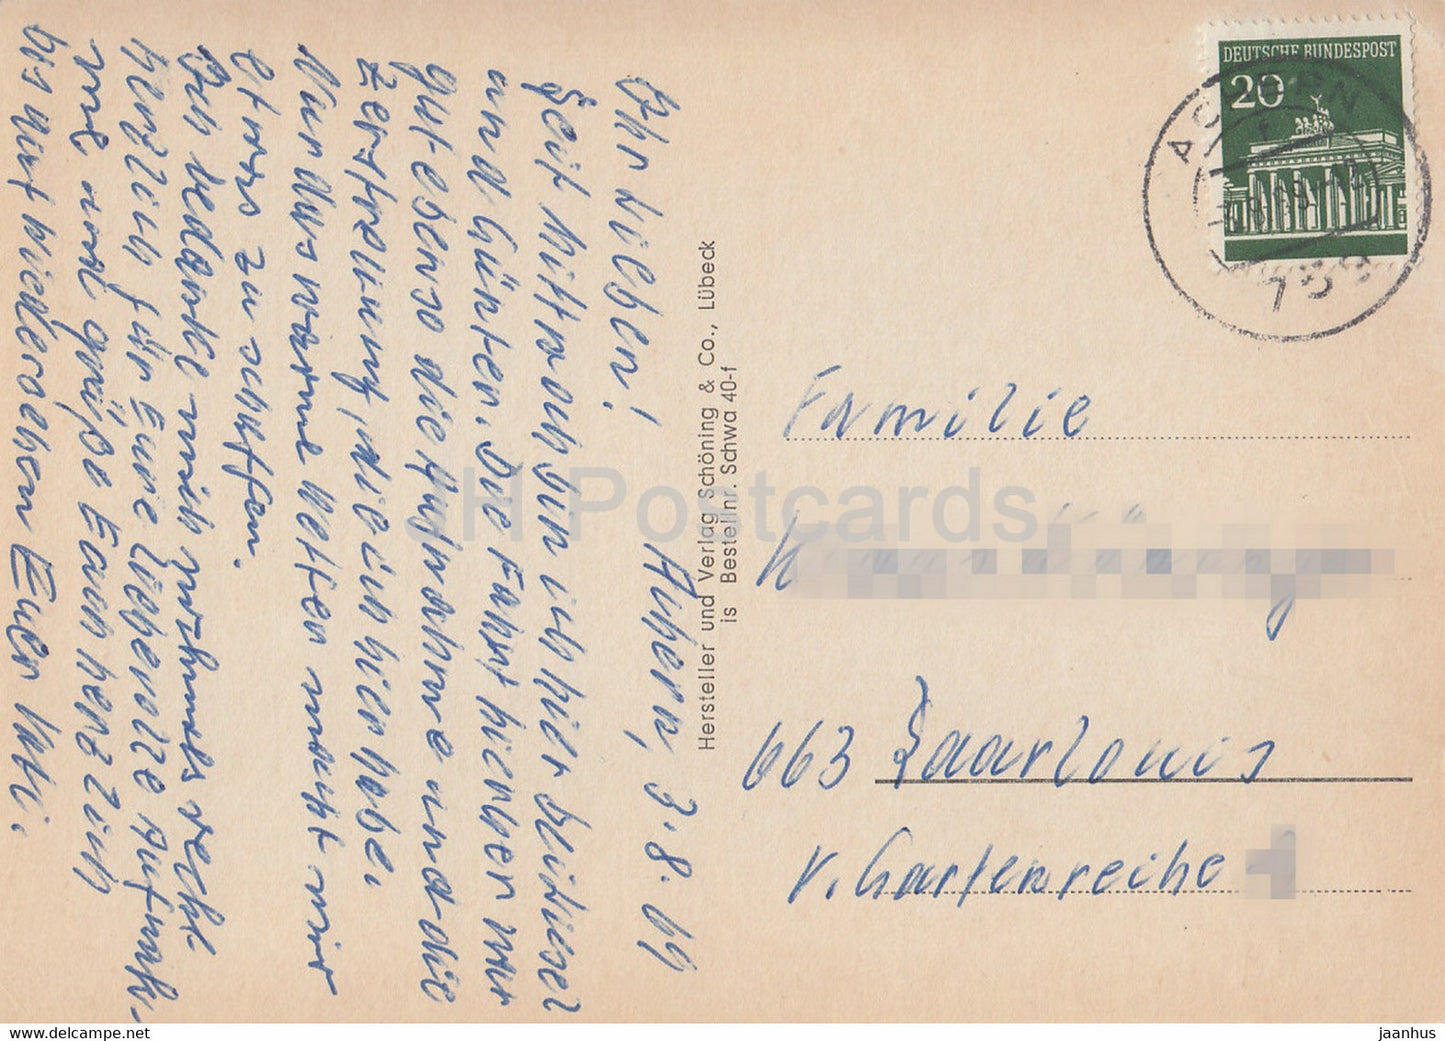 Achern, 3.8.69
Ihr Lieben!
Seit Mittwoch bin ich hier bei Liesel
und Günter. Die Fahrt hierher war
gut ebenso die Aufnahme und die
Zerstreuung, die ich hier habe.
Nur das warme Wetter macht mir
etwas zu schaffen.
Ich bedanke mich nochmals recht
herzlich für Eure liebevolle Aufnah-
me und grüße Euch herzlich
bis auf Wiedersehen Euer
Hersteller und Verlag Schöning & Co., Lübeck
is Bestellnr. Schwa 40-f
DEUTSCHE BUNDESPOST
20
ACHERN
Familie
663 Saarlouis
v. Gartenreihe
JH Postcards
delcampe.net
jaanhus